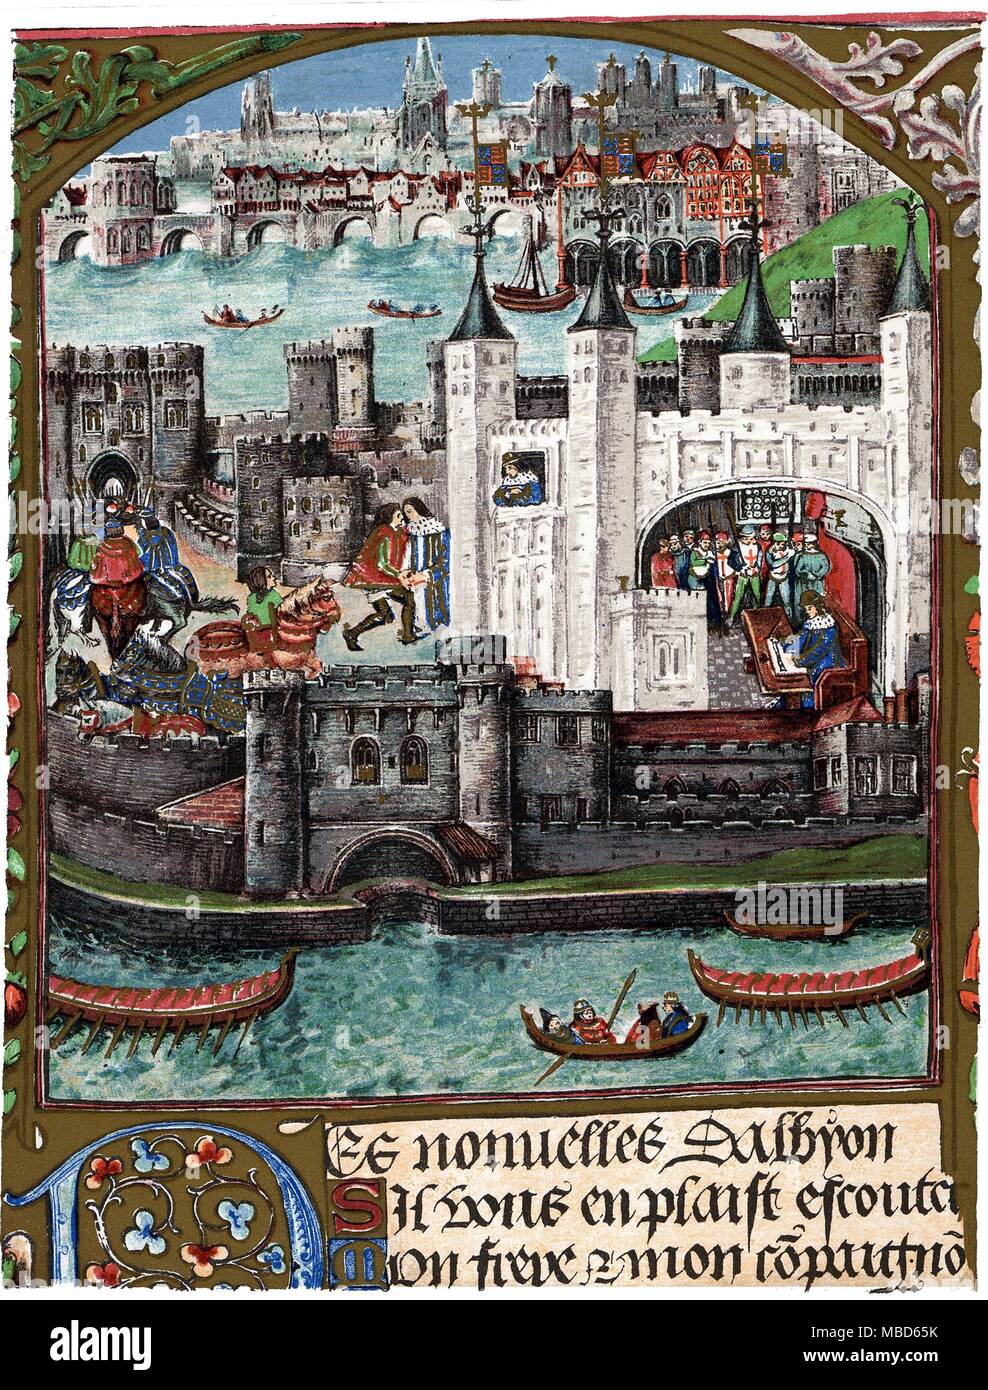 Es nouuelles Dalbyon
Sil vous en plaist escouter
Mon frere & mon cōpaignō
alamy
Image ID: MBD65K
www.alamy.com